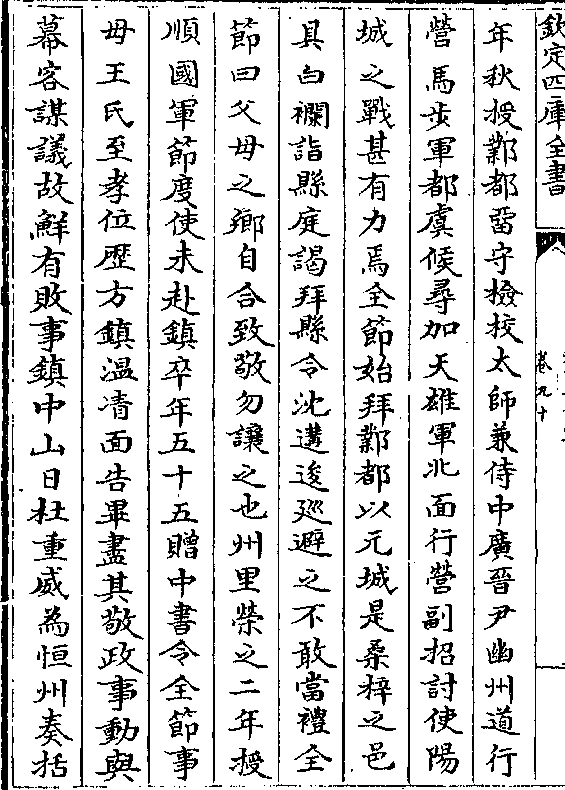 欽定四庫全書
卷九十
年秋授鄴都留守檢校太師兼侍中廣晉尹幽州道行
營馬步軍都虞候尋加天雄軍北面行營副招討使陽
城之戰甚有力焉全節始拜鄴都以元城是桑梓之邑
具白襴詣縣庭謁拜縣令沈遘逡廵避之不敢當禮全
節曰父母之鄉自合致敬勿讓之也州里榮之二年授
順國軍節度使未赴鎮卒年五十五贈中書令全節事
母王氏至孝位歷方鎮溫凊面告畢盡其敬政事動與
幕客謀議故鮮有敗事鎮中山日杜重威為恒州奏括